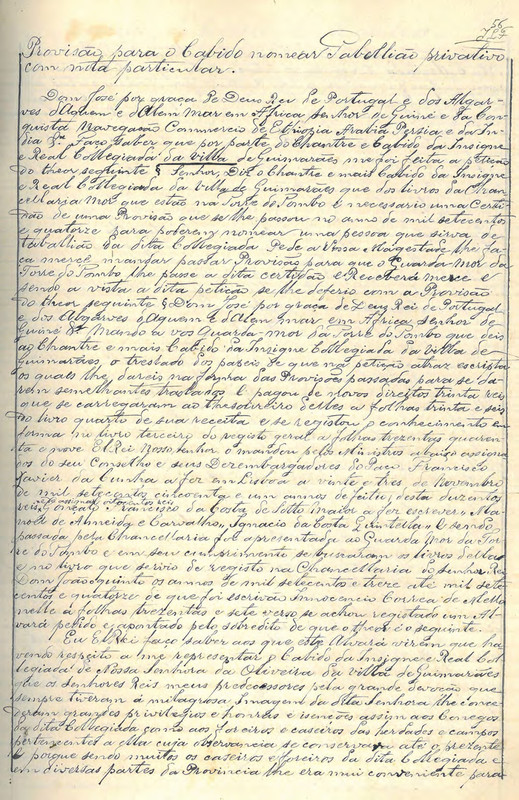 56
Provisão para o Cabido nomear Tabellião privativo
com nota particular.
Dom José por graça de Deus Rei de Portugal e dos Algar-
ves d'Aquem e d'Alem Mar em Africa senhor de Guiné e da Con-
quista Navegação Commercio de Ethiopia Arabia Persia e da In-
dia &ª Faço saber que por parte do Chantre e Cabido da Insigne
e Real Collegiada da villa de Guimarães me foi feita a petição
do theor seguinte § Senhor, Diz o Chantre e mais Cabido da Insigne
e Real Collegiada da villa de Guimarães que dos livros da Chan-
cellaria Mor que estão na Torre do Tombo é necessario uma Certi-
dão de uma Provisão que se lhe passou no anno de mil setecentos
e quatorze para poderem nomear uma pessoa que sirva de
tabellião da dita Collegiada Pede a Vossa Magestade lhe fa-
ça mercê mandar passar Provisão para que o Guarda Mor da
Torre do Tombo lhe passe a dita certidão E Receberá mercê E
sendo a vista a dita petição se lhe deferio com a Provisão
do theor seguinte § Dom José por graça de Deus Rei de Portugal
e dos Algarves d'Aquem e d'Alem mar em Africa senhor de
Guiné &ª Mando a vos Guarda mor da Torre do Tombo que deis
ao Chantre e mais Cabido da Insigne Collegiada da villa de
Guimarães, o treslado dos papeis de que na petição atraz escripta
os quaes lhe dareis na forma das Provisões passadas para se da-
rem semelhantes traslados E pagou de novos direitos trinta reis
que se carregaram ao thesoureiro delles a folhas trinta e seis
do livro quarto de sua receita e se registou o conhecimento em
forma no livro terceiro do registo geral a folhas trezentas quaren-
ta e nove El Rei Nosso senhor o mandou pelos Ministros abaixo assigna-
dos do seu Conselho e seus Dezembargadores do Paço Francisco
Xavier da Cunha a fez em Lisboa a vinte e tres de Novembro
de mil setecentos cincoenta e um annos de feitio desta duzentos
reis Gonçalo Francisco da Costa de Sotto maior a fez escrever, Ma-
noel de Almeida e Carvalho, Ignacio da Costa Quintella, E sendo
passada pela Chancellaria foi apresentada ao Guarda Mor da Tor-
re do Tombo e em seu cumprimento se buscaram os livros della
e no livro que serviu de registo na Chancellaria do senhor Rei
Dom João quinto os annos de mil setecentos e treze até mil sete
centos e quatorze de que foi escrivão Innocencio Correa de Mello
nelle a folhas trezentas e sete verso se achou registado um Al-
vará pelido e apontado pelo sobredito de que o theor é o seguinte.
Eu El Rei faço saber aos que este Alvará virem que ha-
vendo respeito a me representar o Cabido da Insigne e Real Col-
legiada de Nossa Senhora da Oliveira da villa de Guimarães
que os Senhores Reis meus predecessores pela grande devoção que
sempre tiveram á milagrosa Imagem da dita Senhora lhe conce-
deram grandes privilegios e honras e isenções assim aos Conegos
da dita Collegiada como aos foreiros e caseiros das herdades e campos
pertencentes a ella cuja observancia se conservara até o prezente
E porque sendo muitos os caseiros e foreiros da dita Collegiada e
em diversas partes da Provincia lhe era mui conveniente para